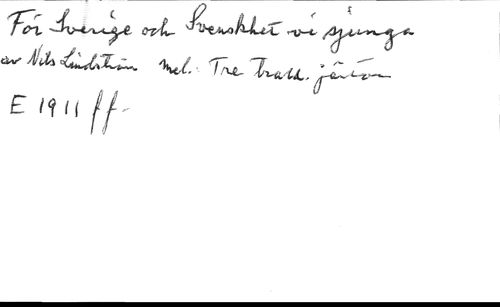 För Sverige och Svenskhet vi sjunga
av Nils Lindström mel. Tre trall. jäntor
E 1911 ff.